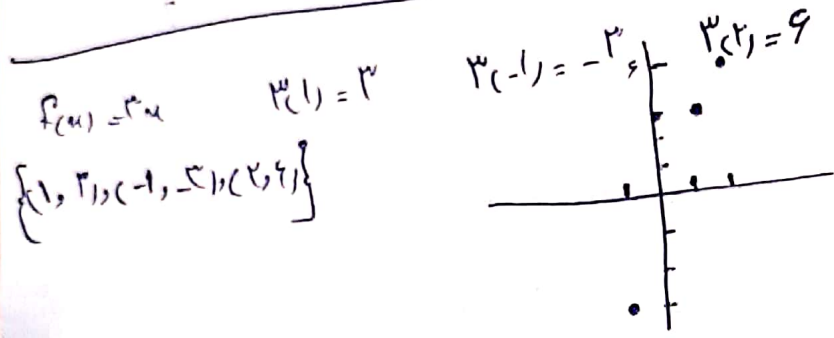 f(x) = ۳x
۳(۱) = ۳
۳(-۱) = -۳
۳(۲) = ۶
{(۱, ۳), (-۱, -۳), (۲, ۶)}
۶